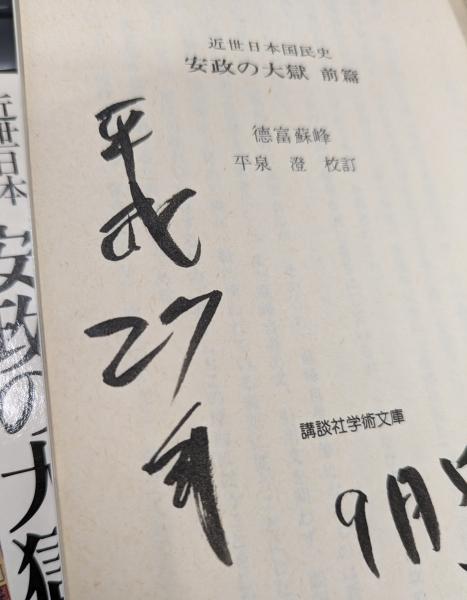 近世日本国民史
安政の大獄 前篇
德富蘇峰
平泉 澄 校訂
講談社学術文庫
平成
27
年
9月
近世日本
安政の大獄